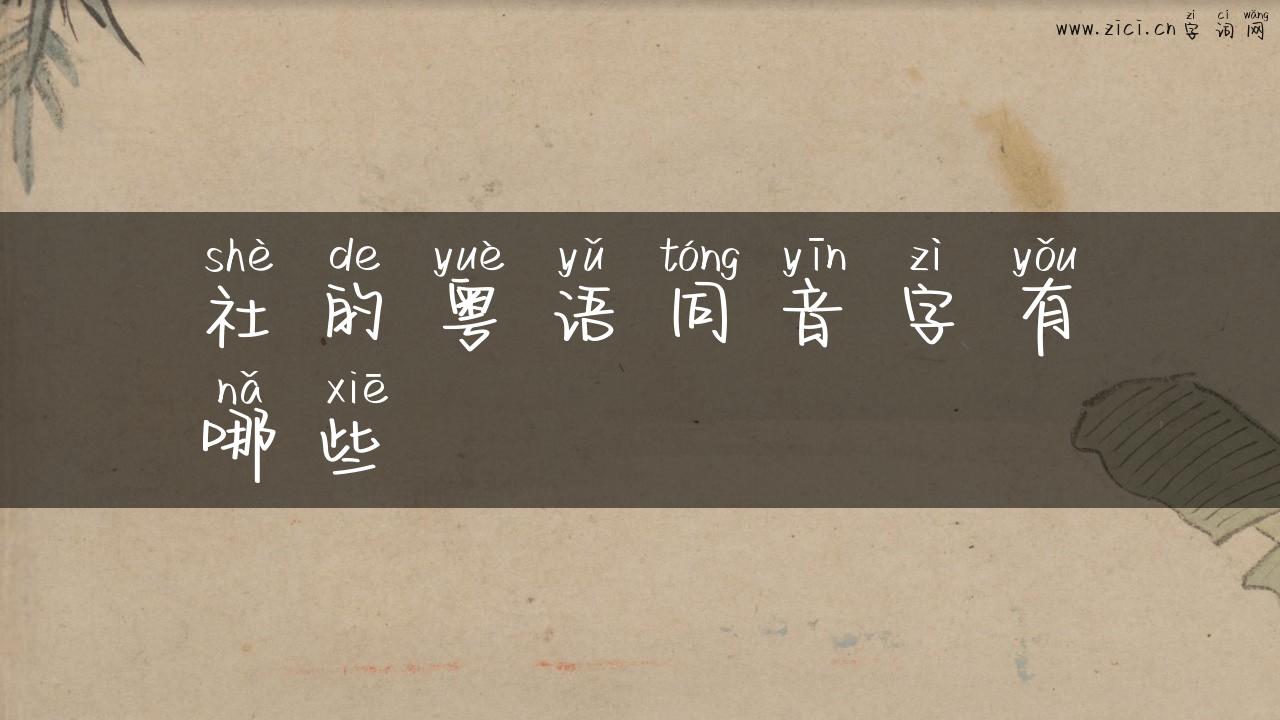 zì cí wǎng
www.zici.cn 字词网
shè de yuè yǔ tóng yīn zì yǒu
社的粤语同音字有
nǎ xiē
哪些